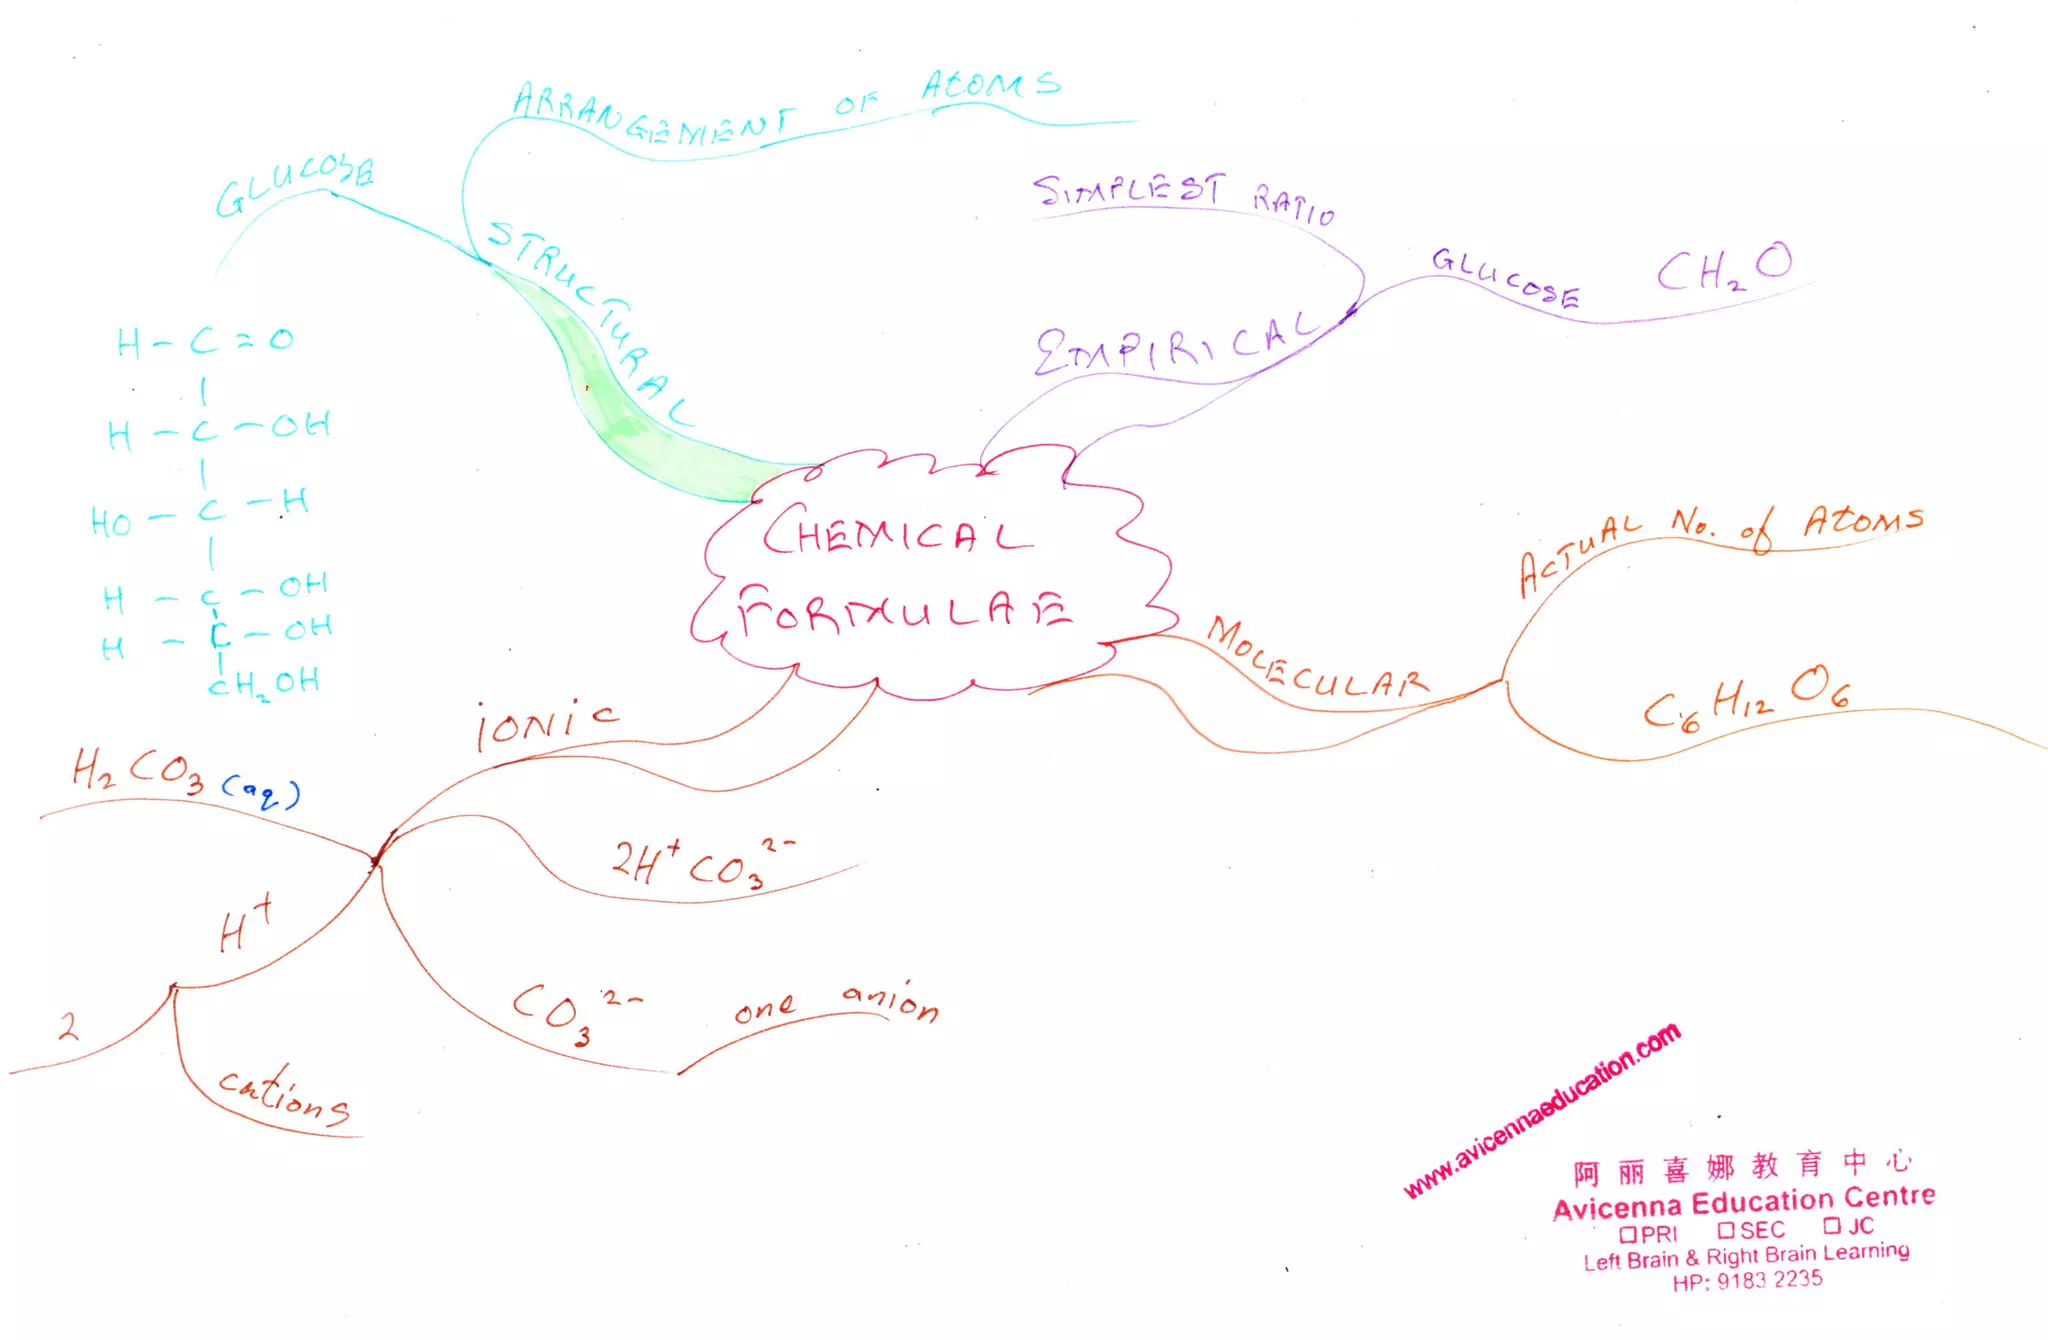 ARRANGEMENT OF ATOMS
GLUCOSE
STRUCTURAL
H - C = O
H - C - OH
HO - C - H
H - C - OH
H - C - OH
CH₂OH
SIMPLEST RATIO
EMPIRICAL
GLUCOSE CH₂O
CHEMICAL
FORMULAE
MOLECULAR
ACTUAL No. of ATOMS
C₆H₁₂O₆
iONiC
H₂CO₃ (aq)
2H⁺ CO₃²⁻
H⁺
2
cations
CO₃²⁻ one anion
www.avicennaeducation.com
阿丽喜娜教育中心
Avicenna Education Centre
☐PRI ☐SEC ☐JC
Left Brain & Right Brain Learning
HP: 9183 2235